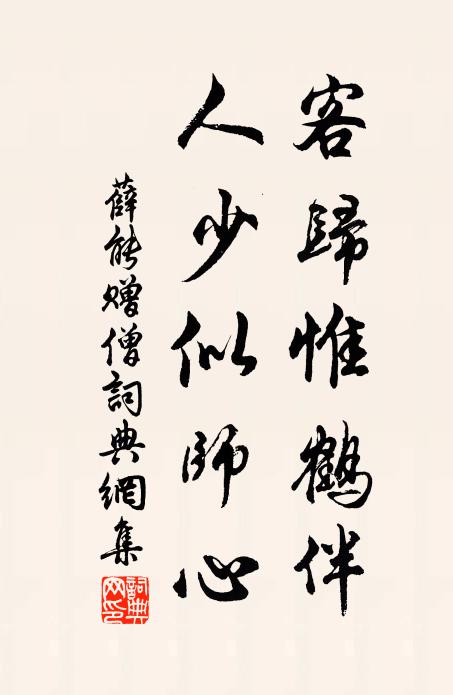 客歸惟鶴伴
人少似師心
薛能贈僧詞典網集
詞典網印